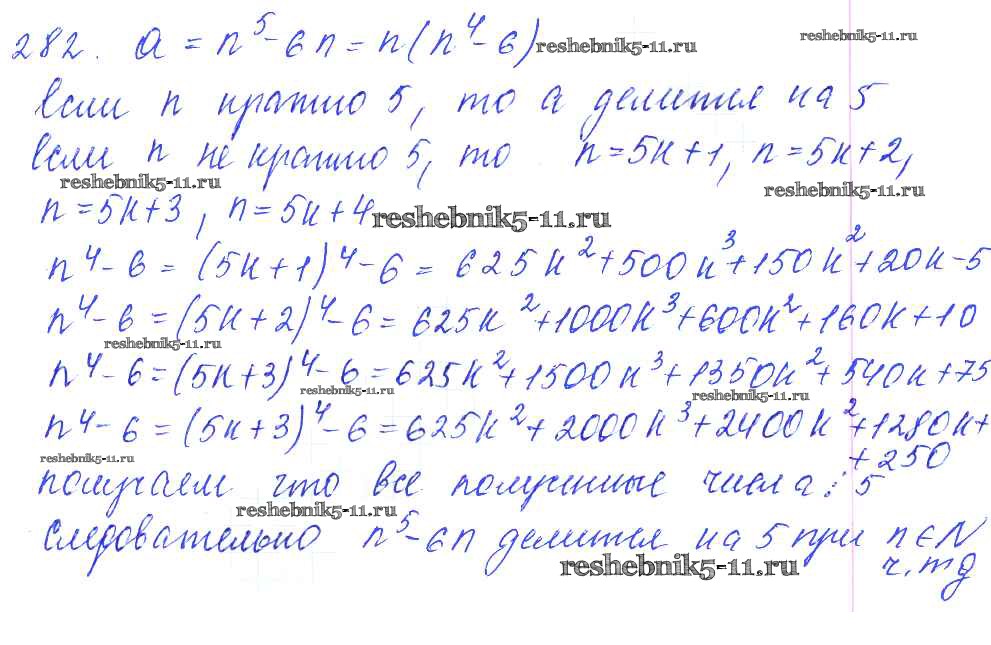 282. a = n⁵ - 6n = n(n⁴ - 6) reshebnik5-11.ru reshebnik5-11.ru
если n кратно 5, то a делится на 5
если n не кратно 5, то n = 5k + 1, n = 5k + 2,
reshebnik5-11.ru reshebnik5-11.ru
n = 5k + 3, n = 5k + 4 reshebnik5-11.ru
n⁴ - 6 = (5k + 1)⁴ - 6 = 625k² + 500k³ + 150k² + 20k - 5
n⁴ - 6 = (5k + 2)⁴ - 6 = 625k² + 1000k³ + 600k² + 160k + 10
reshebnik5-11.ru
n⁴ - 6 = (5k + 3)⁴ - 6 = 625k² + 1500k³ + 1350k² + 540k + 75
reshebnik5-11.ru reshebnik5-11.ru
n⁴ - 6 = (5k + 3)⁴ - 6 = 625k² + 2000k³ + 2400k² + 1280k +
reshebnik5-11.ru + 250
получаем что все полученные числа ⋮ 5
reshebnik5-11.ru
следовательно n⁵ - 6n делится на 5 при n ∈ N
reshebnik5-11.ru ч.тд